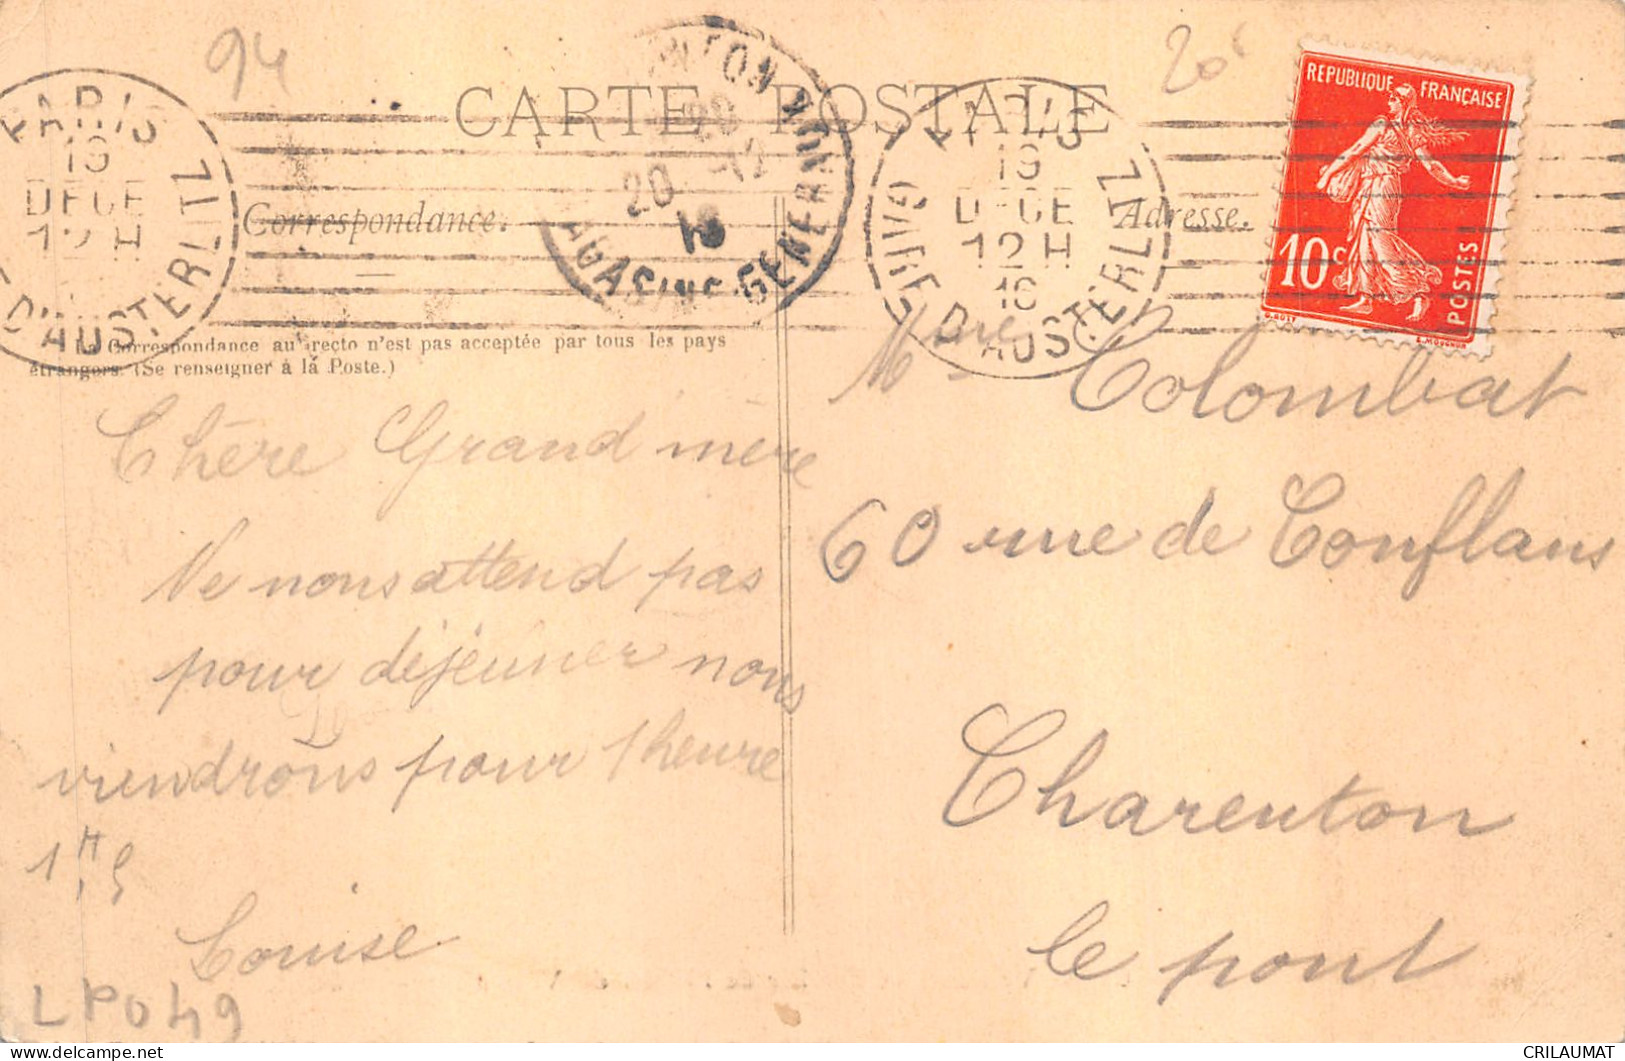 94
20c
CARTE POSTALE
PARIS
19
DECE
12 H
D'AUSTERLITZ
20 -12
16
MAGASINS GENERAUX
PARIS
19
DECE
12 H
16
GARE D'AUSTERLITZ
REPUBLIQUE FRANÇAISE
10c
POSTES
Correspondance.
Adresse.
La Correspondance au recto n'est pas acceptée par tous les pays
étrangers. (Se renseigner à la Poste.)
Chère Grand mère
Ne nous attend pas
pour déjeuner nous
viendrons pour 1 heure
1H,
Louise
LP049
Mme Colombat
60 rue de Conflans
Charenton
le pont
CRILAUMAT